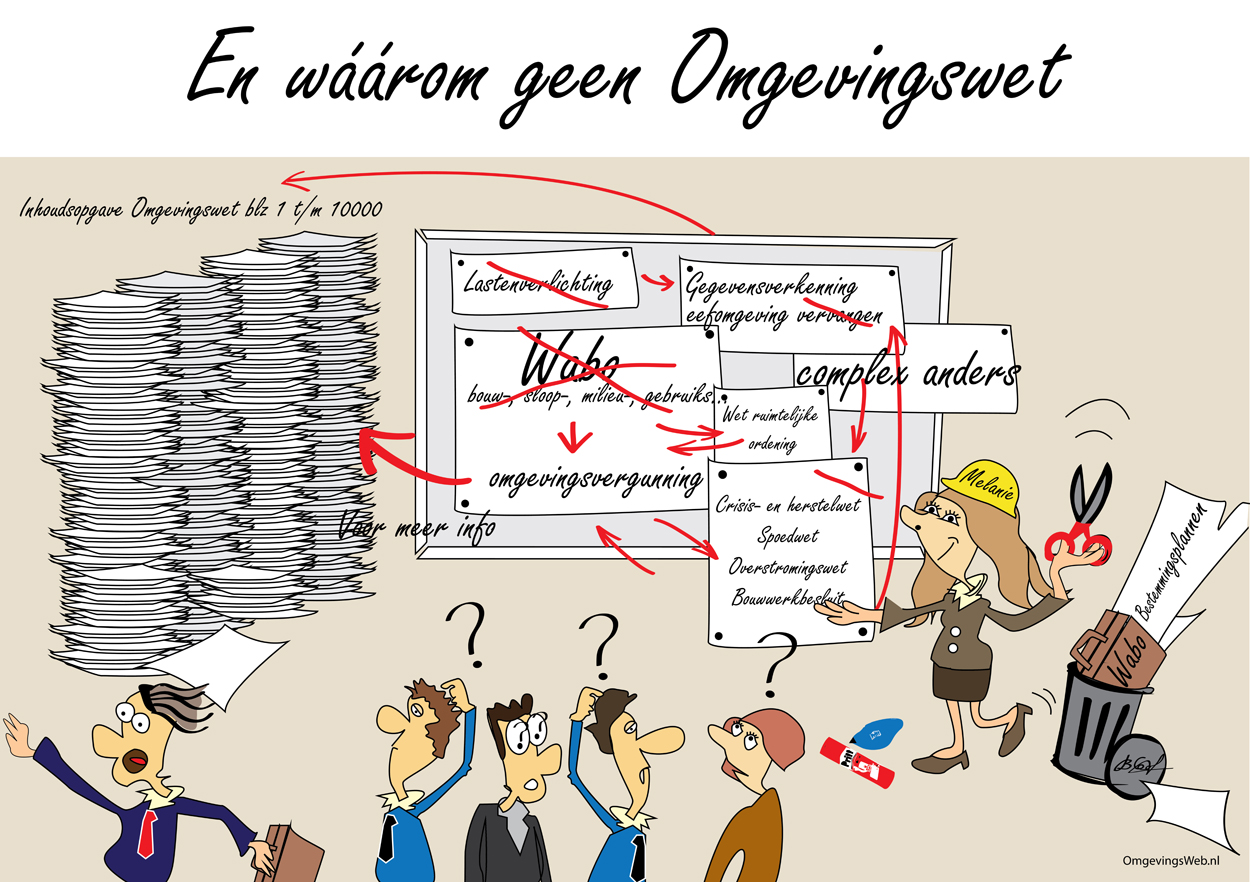 En wáárom geen Omgevingswet
Inhoudsopgave Omgevingswet blz 1 t/m 10000
Lastenverlichting
Gegevensverkenning
eefomgeving vervangen
Wabo
bouw-, sloop-, milieu-, gebruiks...
complex anders
Wet ruimtelijke
ordening
omgevingsvergunning
Voor meer info
Crisis- en herstelwet
Spoedwet
Overstromingswet
Bouwwerkbesluit
Melanie
Bestemmingsplannen
Wabo
?
?
?
Pritt
OmgevingsWeb.nl